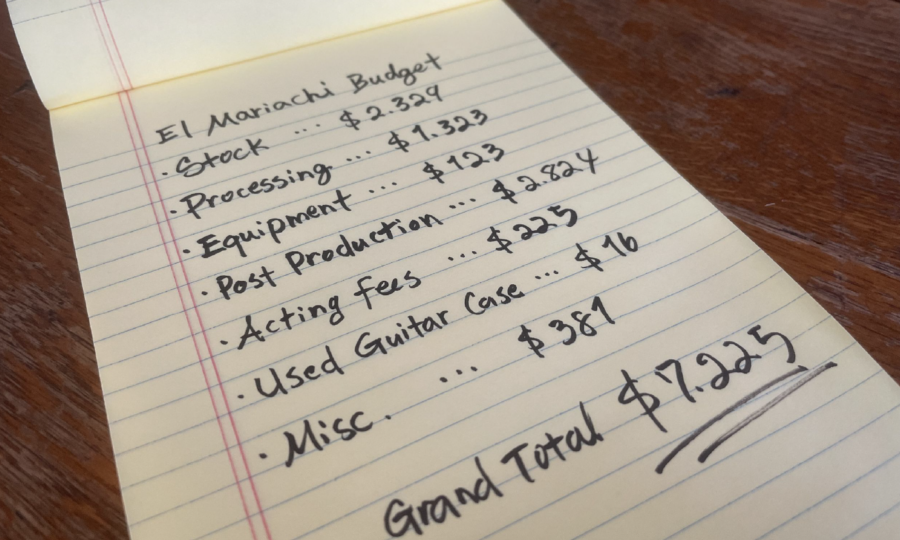 El Mariachi Budget
· Stock ... $2.329
· Processing ... $1.323
· Equipment ... $123
· Post Production ... $2.824
· Acting fees ... $225
· Used Guitar Case ... $16
· Misc. ... $381
Grand Total $7.225